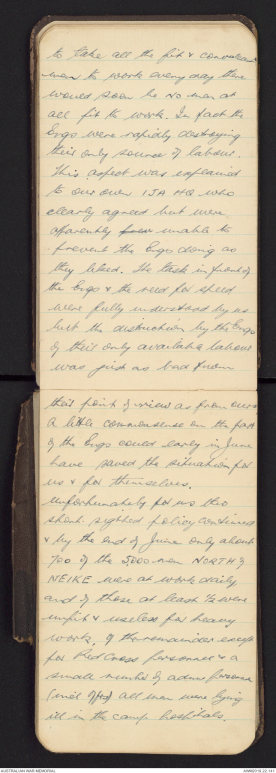 to take all the fit & convalescent
men to work every day there
would soon be no men at
all fit to work. In fact the
Engs were rapidly destroying
their only source of labour.
This aspect was explained
to our own IJA HQ who
clearly agreed but were
apparently unable to
prevent the Engs doing as
they liked. The task in front of
the Engs & the need for speed
were fully understood by us
but the destruction by the Engs
of their only available labour
was just as bad from
their point of view as from ours
A little commonsense on the part
of the Engs could early in June
have saved the situation for
us & for themselves.
Unfortunately for us this
short sighted policy continued
& by the end of June only about
700 of the 5000 men NORTH of
NEIKE were at work daily
and of those at least ½ were
unfit & useless for heavy
work. Of the remainder except
for Red Cross personnel & a
small number of admin personnel
(incl offrs) all men were lying
ill in the camp hospitals.
AUSTRALIAN WAR MEMORIAL